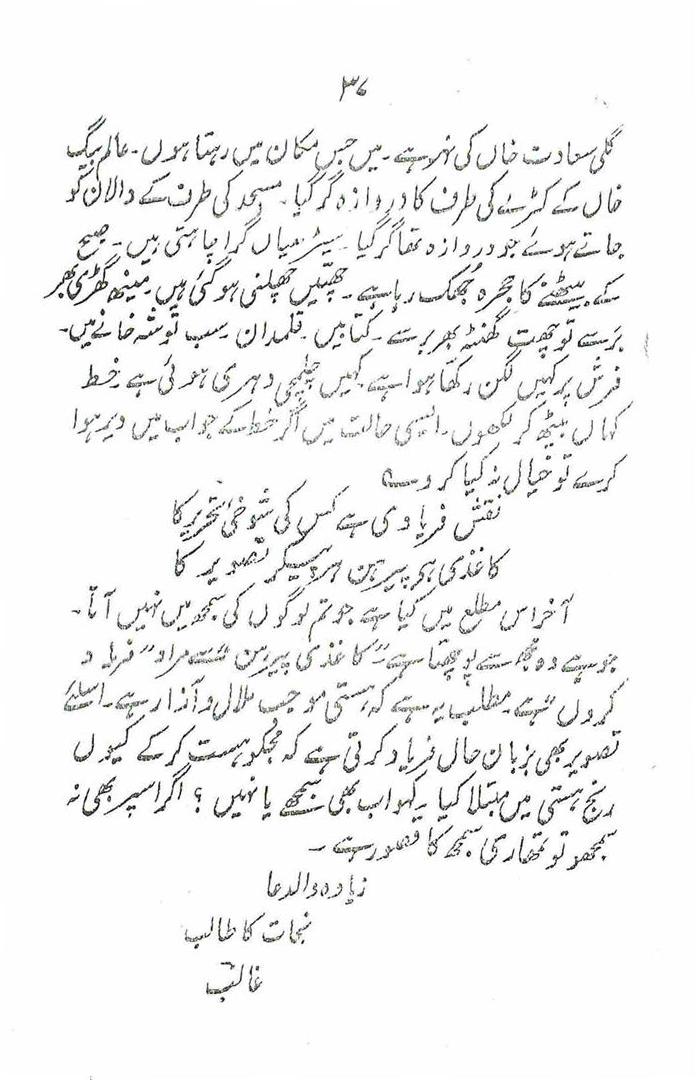 ۳۷
گلی سعادت خاں کی نہر ہے ۔ میں جس مکان میں رہتا ہوں ۔ عالم بیگ
خاں کے کٹرے کی طرف کا دروازہ گر گیا ۔ مسجد کی طرف کے دالان کو
جاتے ہوئے جو دروازہ تھا گر گیا ۔ سیڑھیاں گرا چاہتی ہیں ۔ صبح
کے بیٹھنے کا حجرہ جُھک رہا ہے ۔ چھتیں چھلنی ہو گئی ہیں ۔ مینھ گھڑی بھر
برسے تو چھت گھنٹہ بھر برسے ۔ کتابیں ۔ قلمدان ۔ سب توشہ خانے میں ۔
فرش پر کہیں لگن رکھا ہوا ہے کہیں چلمچی دھری ہوئی ہے ۔ خط
کہاں بیٹھ کر لکھوں ۔ ایسی حالت میں اگر خط کے جواب میں دیر ہوا
کرے تو خیال نہ کیا کرو ۔
نقش فریادی ہے کس کی شوخیٔ تحریر کا
کاغذی ہے پیرہن ہر پیکرِ تصویر کا
آخر اس مطلع میں کیا ہے جو تم لوگوں کی سمجھ میں نہیں آتا ۔
جو ہے وہ مجھ سے پوچھتا ہے ۔ "کاغذی پیرہن" سے مراد "فریاد
کروں" ہے ۔ مطلب یہ ہے کہ ہستی موجب ملال و آزار ہے ۔ اسلئے
تصویر بھی بزبان حال فریاد کرتی ہے کہ مجکو ہست کر کے کیوں
رنج ہستی میں مبتلا کیا ۔ کہو اب بھی سمجھے یا نہیں ؟ اگر اسپر بھی نہ
سمجھو تو تمھاری سمجھ کا قصور ہے ۔
زیادہ والدعا
نجات کا طالب
غالب